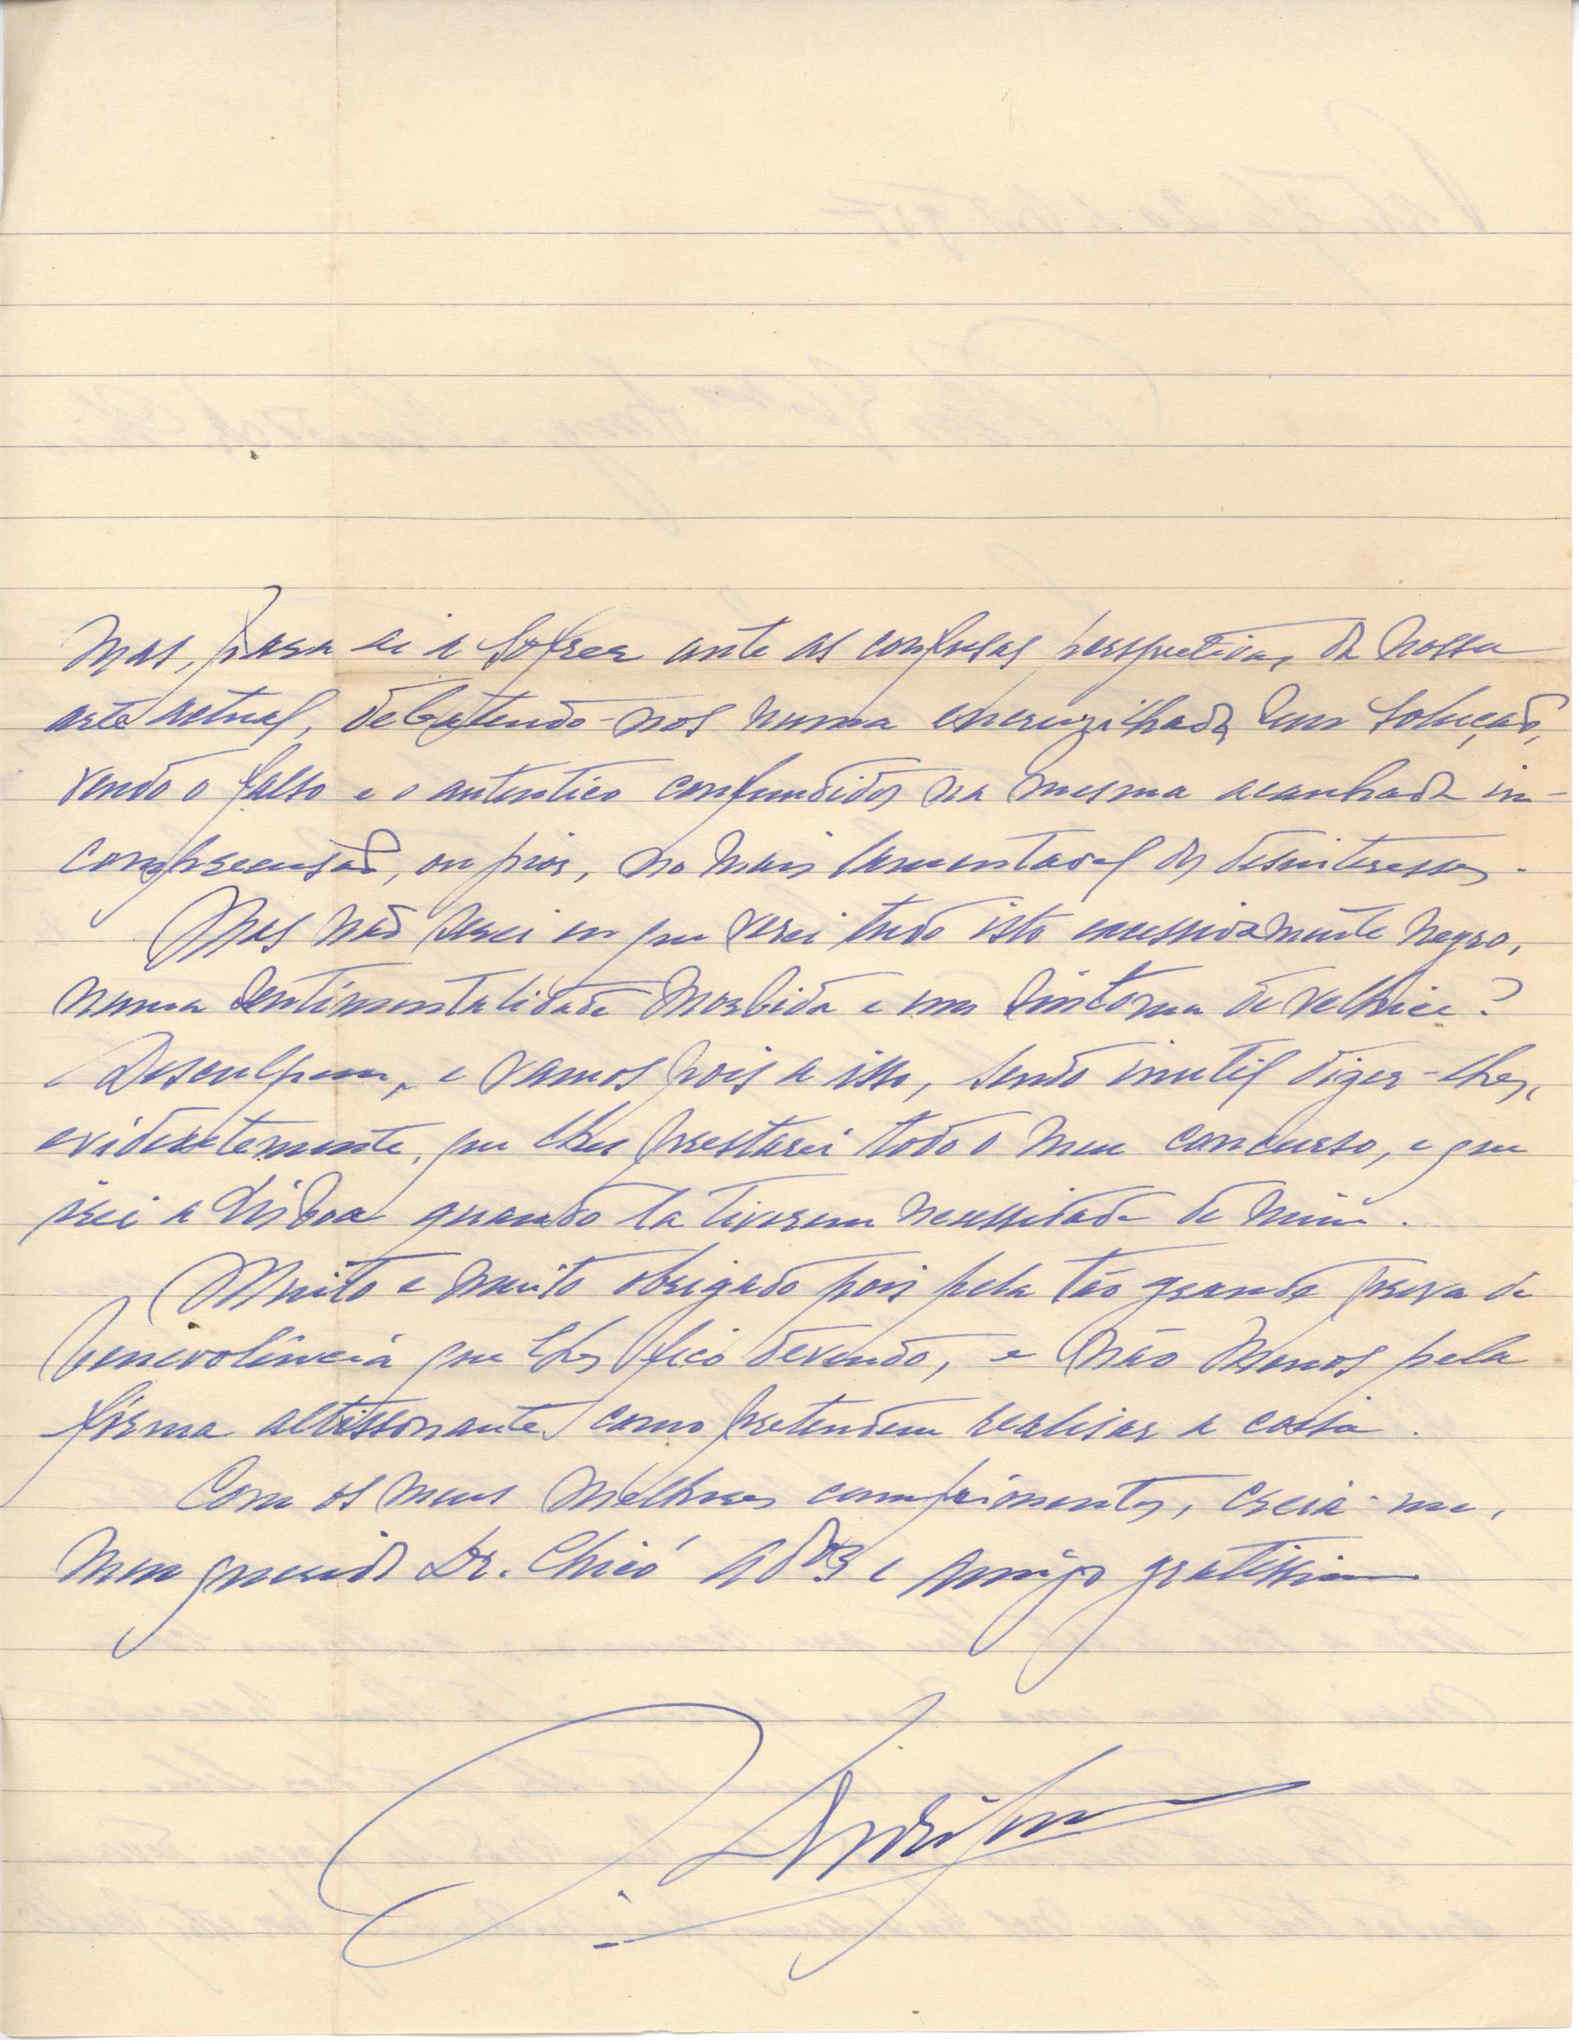 Mas, para ai a sofrer ante as confusas perspectivas da nossa
arte actual, debatendo-nos numa encruzilhada sem solução,
vendo o falso e o autentico confundidos na mesma acanhada in-
compreensão, ou pior, no mais lamentavel dos desinteresses.
Mas não serei eu que verei tudo isto excessivamente negro,
numa sentimentalidade morbida e um sintoma de velhice?
Desculpem, e vamos pois a isso, sendo inutil dizer-lhes,
evidentemente, que lhes prestarei todo o meu concurso, e que
irei a Lisboa quando lá tiverem necessidade de mim.
Muito e muito obrigado pois pela tão grande prova de
benevolência que lhes fico devendo, e não menos pela
fórma altissonante como pretendem realisar a coisa.
Com os meus melhores cumprimentos, creia-me,
meu querido Dr. Chicó Ador e amigo gratissimo